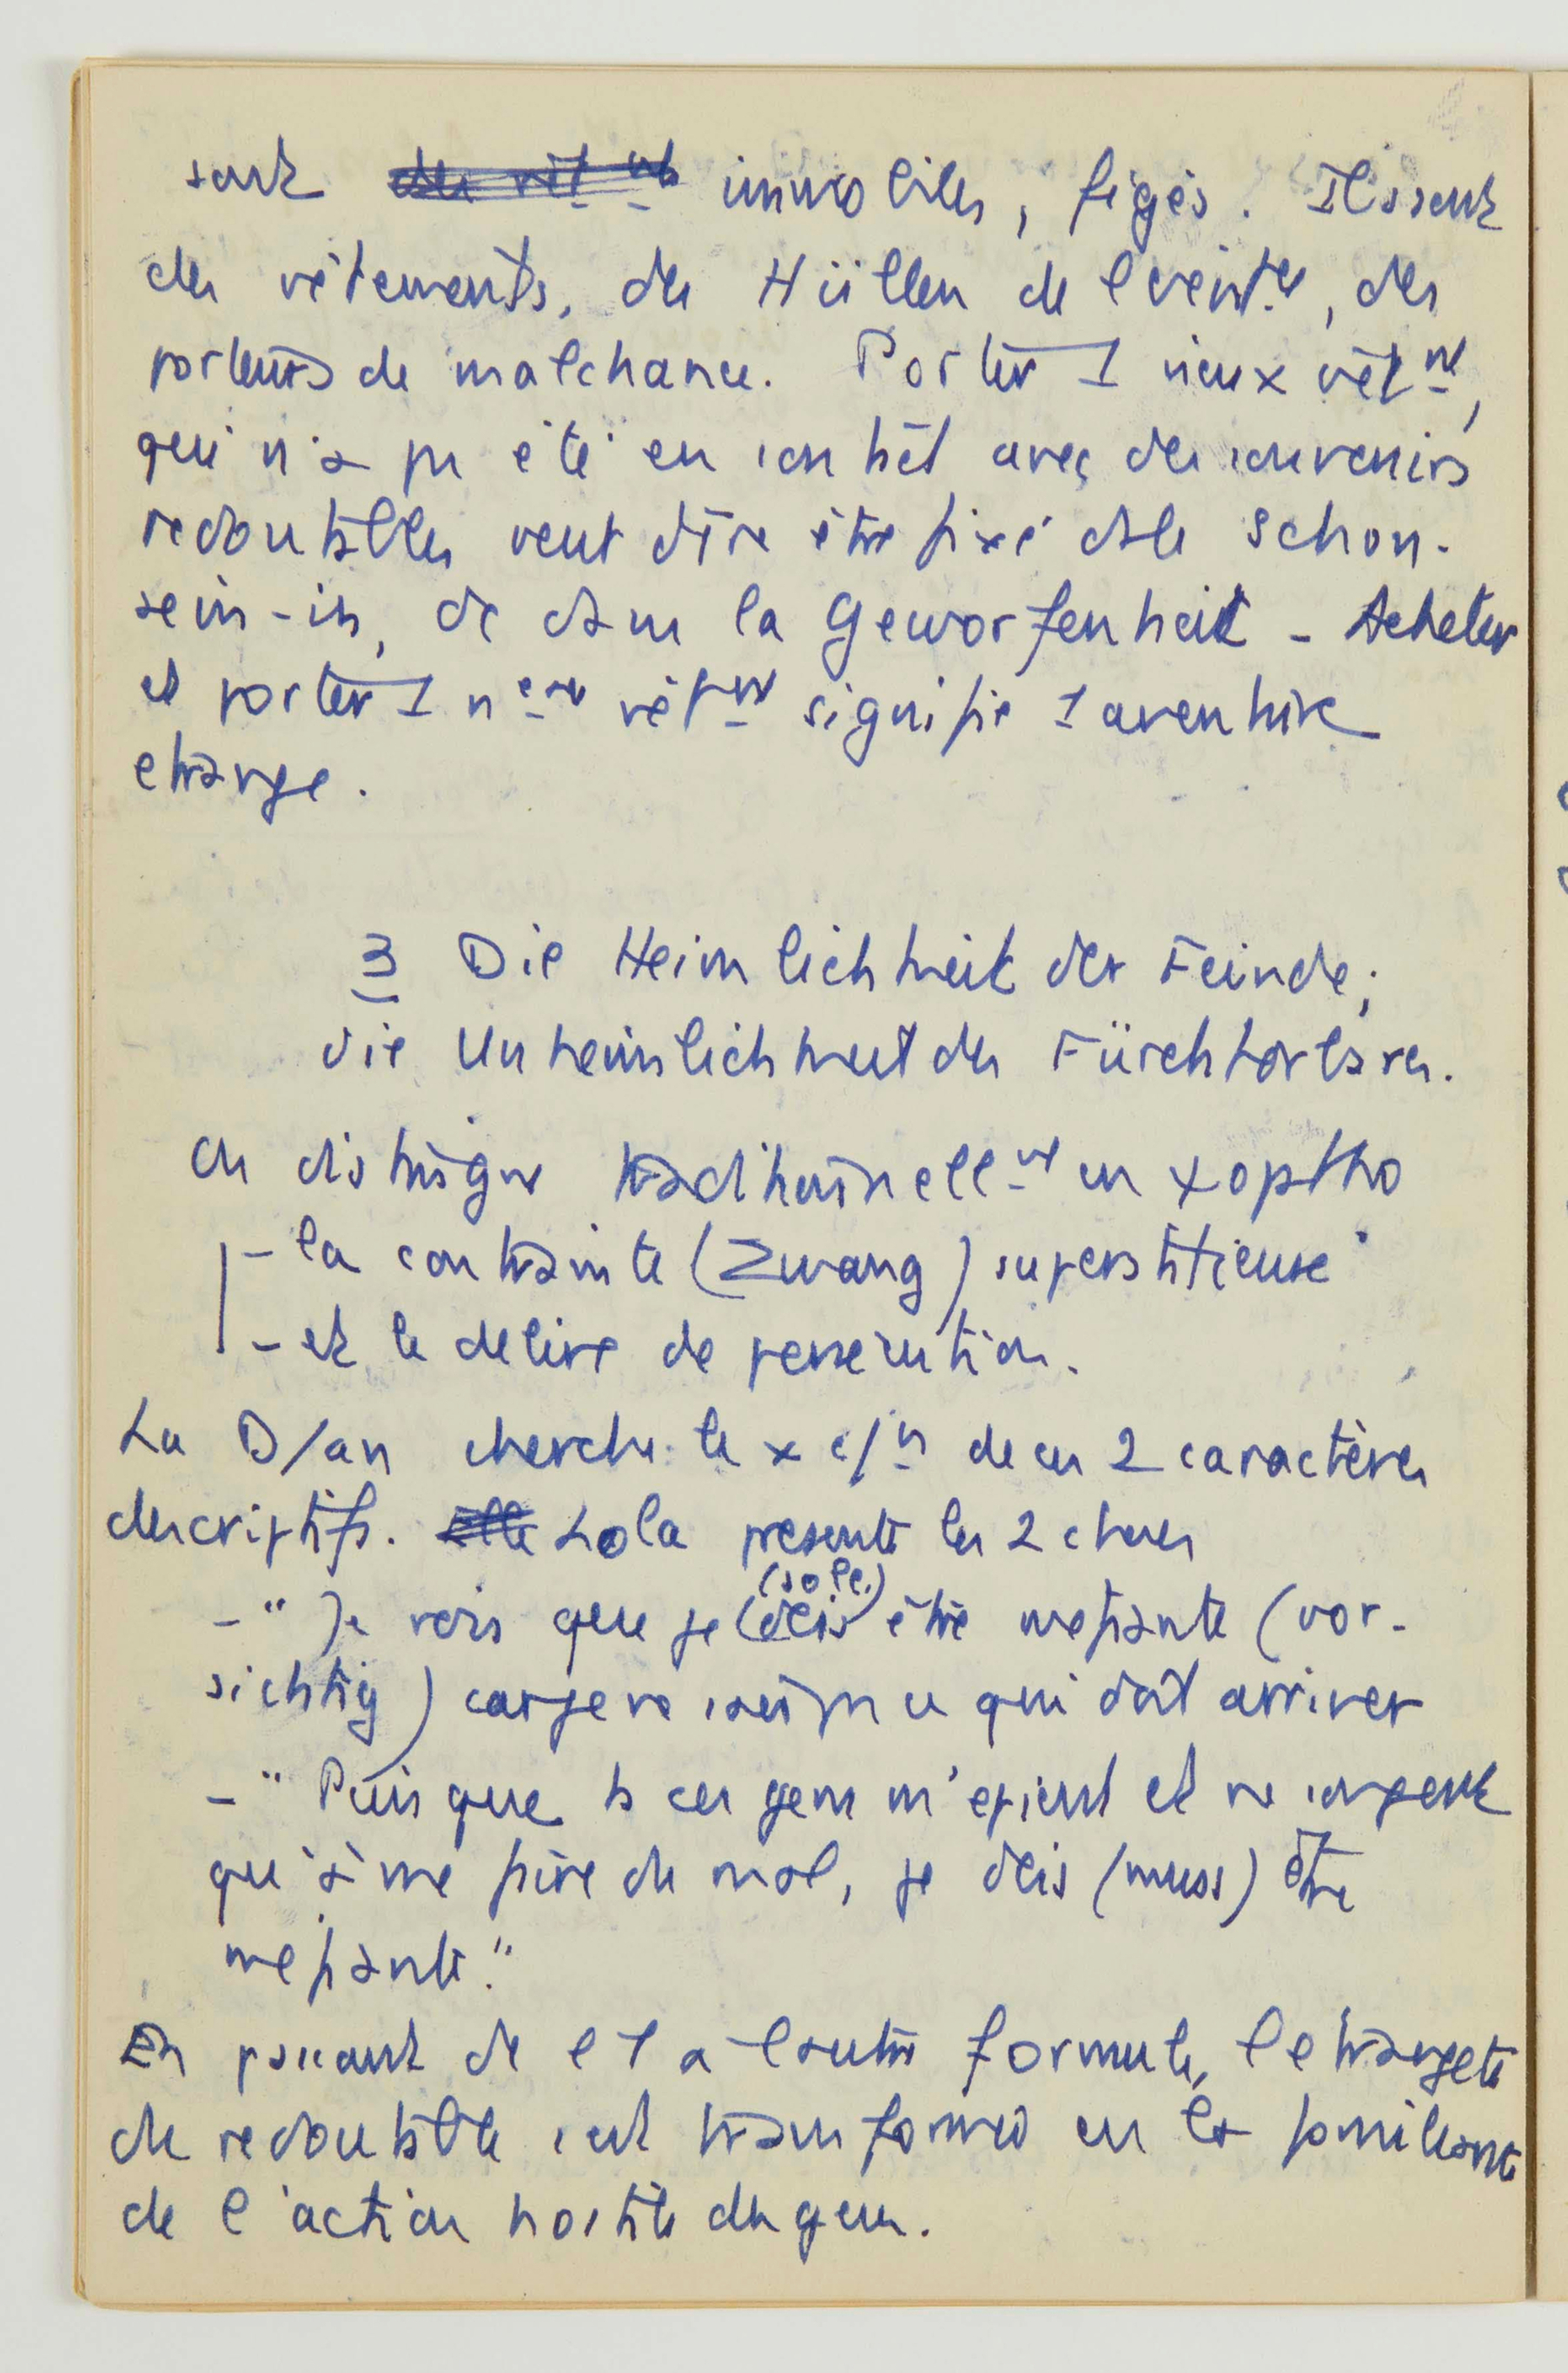 sont des vêt nts immobiles, figés. Ils sont
des vêtements, des Hüllen de l'exist.ce, des
porteurs de malchance. Porter 1 vieux vêt nt,
qui n'a pas été en contact avec des souvenirs
redoutables veut dire être fixé ds le Schon-
sein-in, de dans la Geworfenheit - Acheter
et porter 1 nveau vêt nt signifie 1 aventure
étrange.
3 Die Heimlichkeit der Feinde;
die Unheimlichkeit des Fürchtbares.
On distingue traditionnell nt en
- la contrainte (Zwang) superstitieuse
- et le délire de persécution.
La D/an cherche le de ces 2 caractères
descriptifs. Elle Lola présente les 2 choses
- " Je vois que je (soll.) (dois être méfiante (vor-
sichtig) car je ne sais pas ce qui doit arriver
- " Puisque ts ces gens m'épient et ne songent
qu'à me faire du mal, je dois (muss) être
méfiante."
En passant de l'1 à l'autre formule, l'étrangeté
du redoutable s'est transformée en la
de l'action hostile des gens.